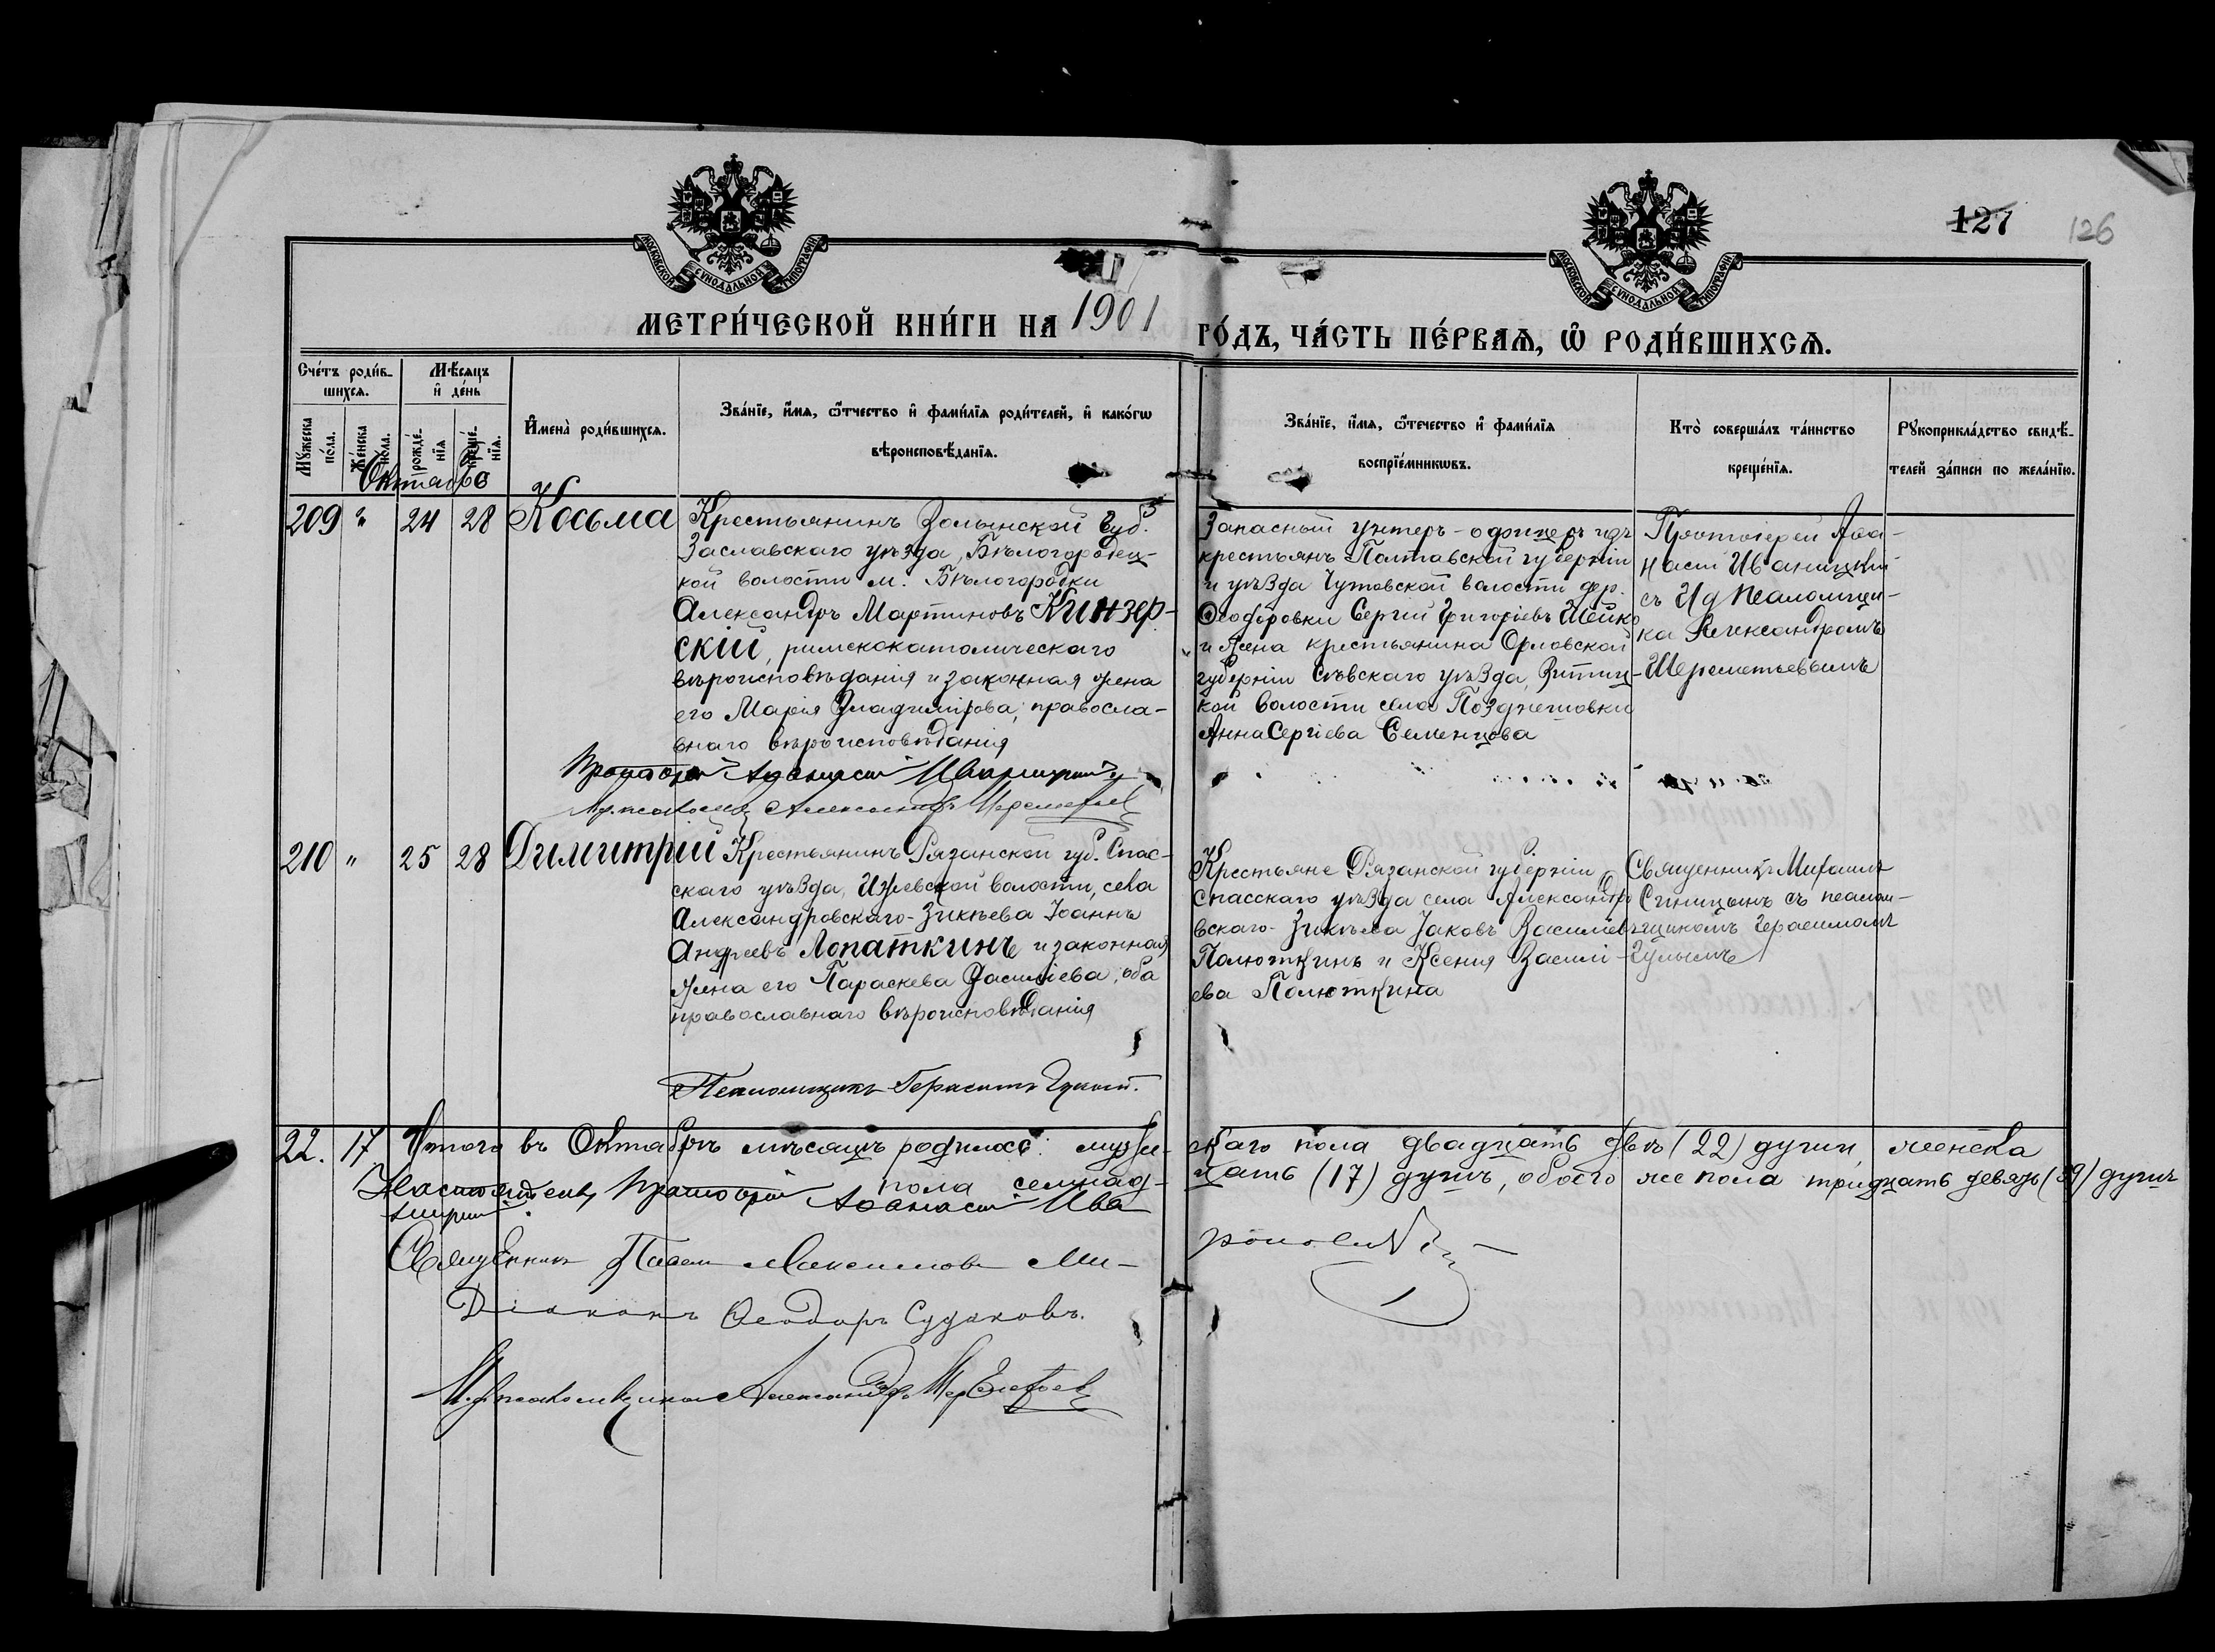 127
126
МОСКОВСКОЙ СѴНОДАЛЬНОЙ ТИПОГРАФІИ
МОСКОВСКОЙ СѴНОДАЛЬНОЙ ТИПОГРАФІИ
МЕТРИ́ЧЕСКОЙ КНИ́ГИ НА 1901 ГО́ДЪ, ЧА́СТЬ ПЕ́РВАѦ, Ѡ҆ РОДИ́ВШИХСѦ.
Сче́тъ роди́в-
шихсѧ.
Мѣ́сѧцъ
и҆ де́нь
Мꙋ́жеска
по́ла.
Же́нска
по́ла.
рожде́-
нїѧ
креще́-
нїѧ.
И҆мена̀ роди́вшихсѧ.
Зва́нїе, и҆́мѧ, ѻ҆́тчество и҆ фами́лїѧ роди́телей, и҆ како́гѡ
вѣроисповѣ́данїѧ.
Зва́нїе, и҆́мѧ, ѻ҆те́чество и҆ фами́лїѧ
воспрїе́мникѡвъ.
Кто̀ соверша́лъ та́инство
креще́нїѧ.
Рꙋкоприкла́дство свидѣ́-
телей за́писи по жела́нїю.
Октябрь
209 " 24 28 Косьма
Крестьянинъ Волынской Губ.
Заславскаго уѣзда, Бѣлогородец-
кой волости м. Бѣлогородки
Александръ Мартиновъ Кинзер-
скій, римскокатолическаго
вѣроисповѣданія и законная жена
его Марія Владимірова, правосла-
внаго вѣроисповѣданія
Запасный унтеръ-офицеръ изъ
крестьянъ Полтавской губерніи
и уѣзда Чутовской волости дер.
Ѳеодоровки Сергій Григоріевъ Шейко
и жена крестьянина Орловской
губерніи Сѣвскаго уѣзда,
кой волости села
Анна Сергіева Семенцова
Протоіерей Аѳа-
насій Иваницкій
съ И д Псаломщи-
ка Александромъ
Шереметьевымъ
Протоіерей Аѳанасій Иваницкій
И.д. псаломщ. Александръ Шереметьев
210 " 25 28 Димитрій
Крестьянинъ Рязанской губ. Спас-
скаго уѣзда, Ижевской волости, села
Александровскаго-Зикѣева Іоаннъ
Андреевъ Лопаткинъ и законная
жена его Параскева Василіева, оба
православнаго вѣроисповѣданія
Крестьяне Рязанской губерніи
Спасскаго уѣзда села Александро
вскаго-Зикѣева Іаковъ Василіевъ
Полюткинъ и Ксенія Василі-
ева Полюткина
Священникъ Михаилъ
Синицынъ съ псалом-
щикомъ Герасимомъ
Псаломщикъ Герасимъ
22. 17 Итого въ Октябрѣ мѣсяцѣ родилось: муже-скаго пола двадцать двѣ (22) души, женска
пола семнад-цать (17) душъ, обоего же пола тридцать девять (39) душъ
Настоятель, Протоіерей Аѳанасій Ива
ницкій.
Священникъ Павел Максимовъ Ми-
роновичъ
Діаконъ Ѳеодоръ Судаковъ.
И.д. псаломщика Александръ Шереметьев